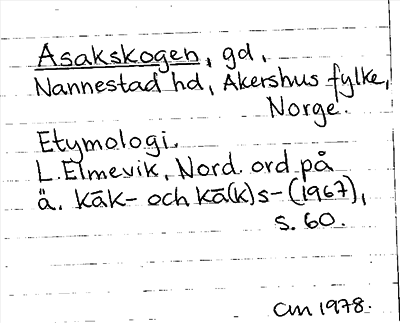 Asakskogen, gd,
Nannestad hd, Akershus fylke,
Norge.
Etymologi.
L. Elmevik, Nord. ord på
ä. kāk- och kā(k)s- (1967),
s. 60.
CM 1978.